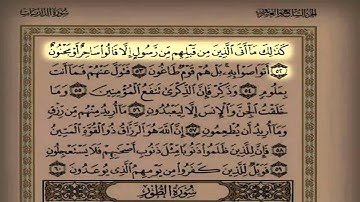 سورة الذاريات
الجزء السابع والعشرون
كَذَٰلِكَ مَا أَتَى الَّذِينَ مِن قَبْلِهِم مِّن رَّسُولٍ إِلَّا قَالُوا سَاحِرٌ أَوْ مَجْنُونٌ
٥٢ أَتَوَاصَوْا بِهِ ۚ بَلْ هُمْ قَوْمٌ طَاغُونَ ٥٣ فَتَوَلَّ عَنْهُمْ فَمَا أَنتَ
بِمَلُومٍ ٥٤ وَذَكِّرْ فَإِنَّ الذِّكْرَىٰ تَنفَعُ الْمُؤْمِنِينَ ٥٥ وَمَا
خَلَقْتُ الْجِنَّ وَالْإِنسَ إِلَّا لِيَعْبُدُونِ ٥٦ مَا أُرِيدُ مِنْهُم مِّن رِّزْقٍ
وَمَا أُرِيدُ أَن يُطْعِمُونِ ٥٧ إِنَّ اللَّهَ هُوَ الرَّزَّاقُ ذُو الْقُوَّةِ الْمَتِينُ
٥٨ فَإِنَّ لِلَّذِينَ ظَلَمُوا ذَنُوبًا مِّثْلَ ذَنُوبِ أَصْحَابِهِمْ فَلَا يَسْتَعْجِلُونِ
٥٩ فَوَيْلٌ لِّلَّذِينَ كَفَرُوا مِن يَوْمِهِمُ الَّذِي يُوعَدُونَ ٦٠
سُورَةُ الطُّورِ